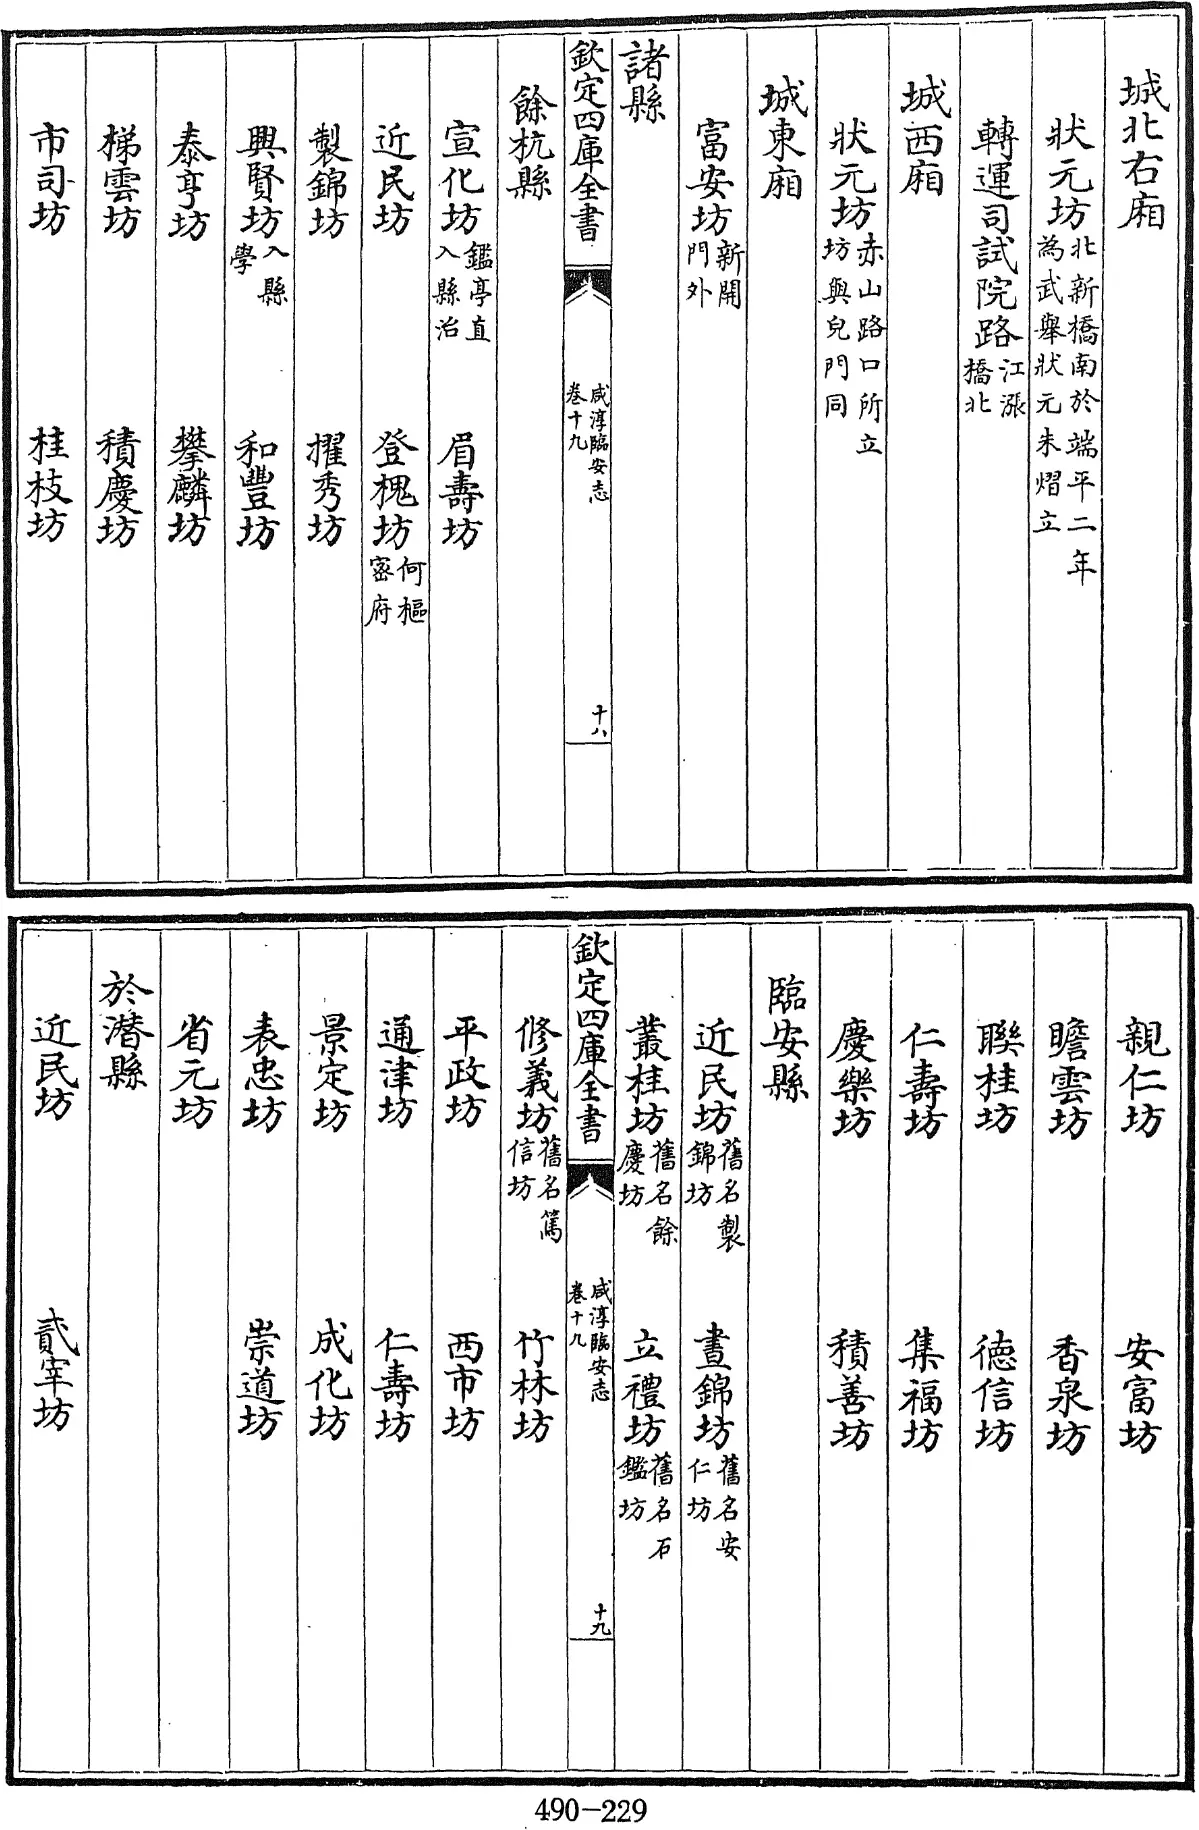 城北右廂
狀元坊北新橋南於端平二年為武舉狀元朱熠立
轉運司試院路江漲橋北
城西廂
狀元坊赤山路口所立坊與皃門同
城東廂
富安坊新開門外
諸縣
欽定四庫全書 咸淳臨安志卷十九 十八
餘杭縣
宣化坊鑑亭直入縣治 眉壽坊
近民坊 登槐坊何樞密府
製錦坊 擢秀坊
興賢坊入縣學 和豐坊
泰亨坊 攀麟坊
梯雲坊 積慶坊
市司坊 桂枝坊
親仁坊 安富坊
瞻雲坊 香泉坊
聯桂坊 德信坊
仁壽坊 集福坊
慶樂坊 積善坊
臨安縣
近民坊舊名製錦坊 晝錦坊舊名安仁坊
叢桂坊舊名餘慶坊 立禮坊舊名石鑑坊
欽定四庫全書 咸淳臨安志卷十九 十九
修義坊舊名篤信坊 竹林坊
平政坊 西市坊
通津坊 仁壽坊
景定坊 成化坊
表忠坊 崇道坊
省元坊
於潛縣
近民坊 貳宰坊
490-229